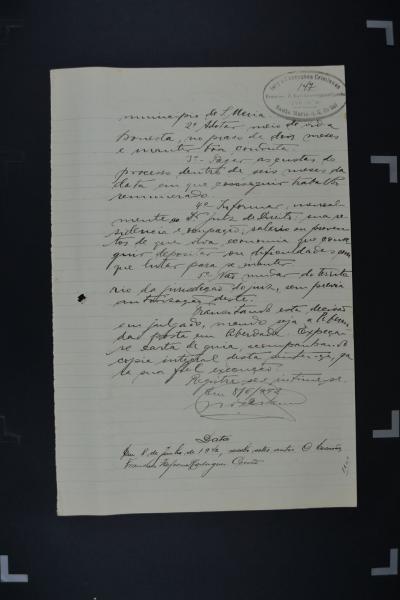 147
municipio de S. Maria.
2º Adotar meio de vida
honesta, no praso de dois meses
e manter bôa conducta
3º Pagar as custas do
processo dentro de seis meses da
data em que conseguir trabalho
remunerado.
4º Informar, mensal-
mente ao Dr. juiz de Direito, sua re-
sidencia e occupação, salario ou proven-
tos de que viva, economia que conse-
guir depositar ou dificuldades com
que lutar para se manter
5º Não mudar do territo-
rio da jurisdição do juiz, sem previa
autorização deste.
Transitando esta decisão
em julgado, seja
posta em liberdade. Expeça-
se carta de guia, acompanhando
copia integral desta sentença, pa-
ra sua fiel execução.
Registre-se e intime-se.
Em 8/6/
Data
Em 8 de junho de 19, recebi estes autos. O escrivão
Francisco